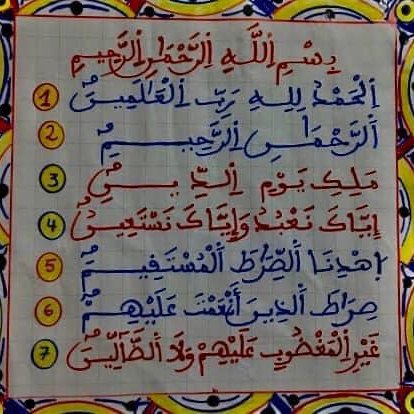 بِسْمِ اِ۬للَّهِ اِ۬لرَّحْمَٰنِ اِ۬لرَّحِيمِ
اَ۬لْحَمْدُ لِلهِ رَبِّ اِ۬لْعَٰلَمِينَ 1
اَ۬لرَّحْمَٰنِ اِ۬لرَّحِيمِ 2
مَلِكِ يَوْمِ اِ۬لدِّينِ 3
إِيَّاكَ نَعْبُدُ وَإِيَّاكَ نَسْتَعِينُ 4
اِهْدِنَا اَ۬لصِّرَٰطَ اَ۬لْمُسْتَقِيمَ 5
صِرَٰطَ اَ۬لذِينَ أَنْعَمْتَ عَلَيْهِمْ 6
غَيْرِ اِ۬لْمَغْضُوبِ عَلَيْهِمْ وَلَا اَ۬لضَّآلِّينَ 7